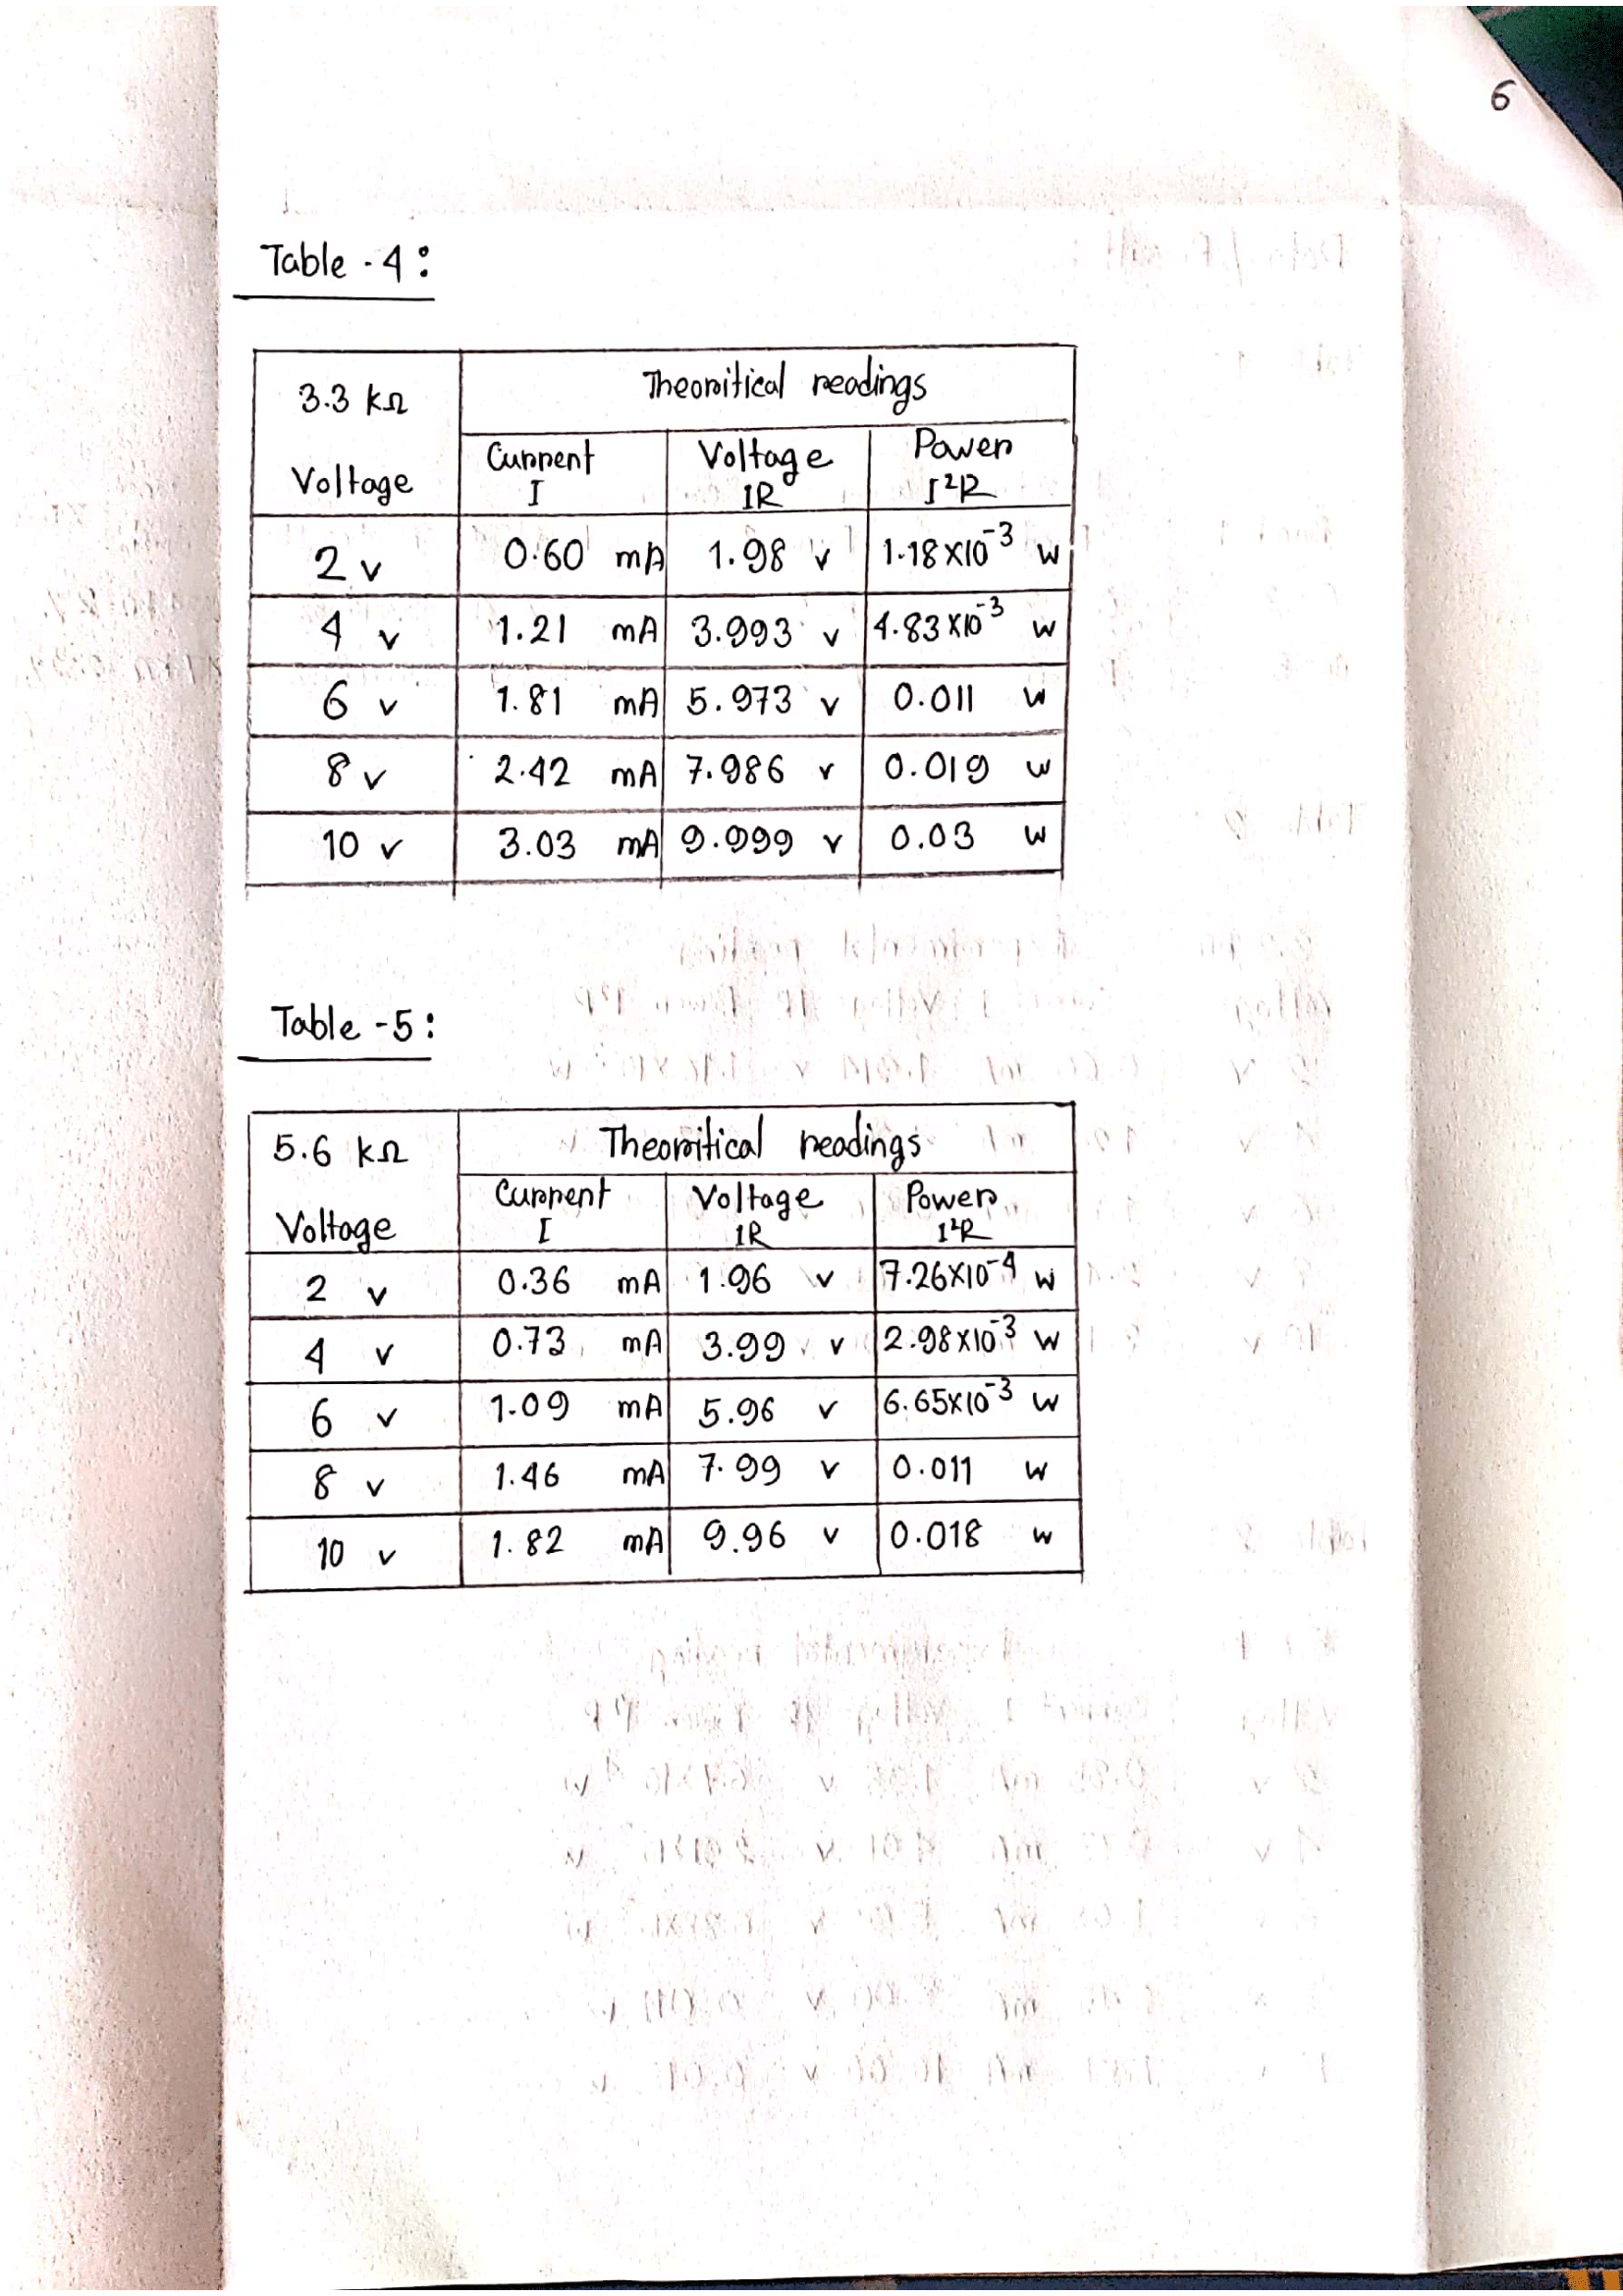 6
Table - 4:
3.3 kΩ Theoritical readings
Voltage Current I Voltage IR Power I²R
2 v 0.60 mA 1.98 v 1.18×10⁻³ w
4 v 1.21 mA 3.993 v 4.83×10⁻³ w
6 v 1.81 mA 5.973 v 0.011 w
8 v 2.42 mA 7.986 v 0.019 w
10 v 3.03 mA 9.999 v 0.03 w
Table - 5:
5.6 kΩ Theoritical readings
Voltage Current I Voltage IR Power I²R
2 v 0.36 mA 1.96 v 7.26×10⁻⁴ w
4 v 0.73 mA 3.99 v 2.98×10⁻³ w
6 v 1.09 mA 5.96 v 6.65×10⁻³ w
8 v 1.46 mA 7.99 v 0.011 w
10 v 1.82 mA 9.96 v 0.018 w